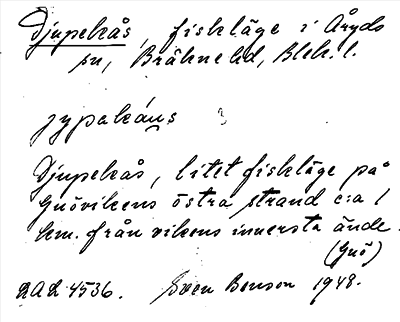 Djupekås, fiskläge i Åryds
sn, Bräkne hd, Blek. l.
jypakáns
Djupekås, litet fiskläge på
Gnövikens östra strand c:a 1
km. från vikens innersta ände.
(Gnö)
2AL 4536. Sven Benson 1948.